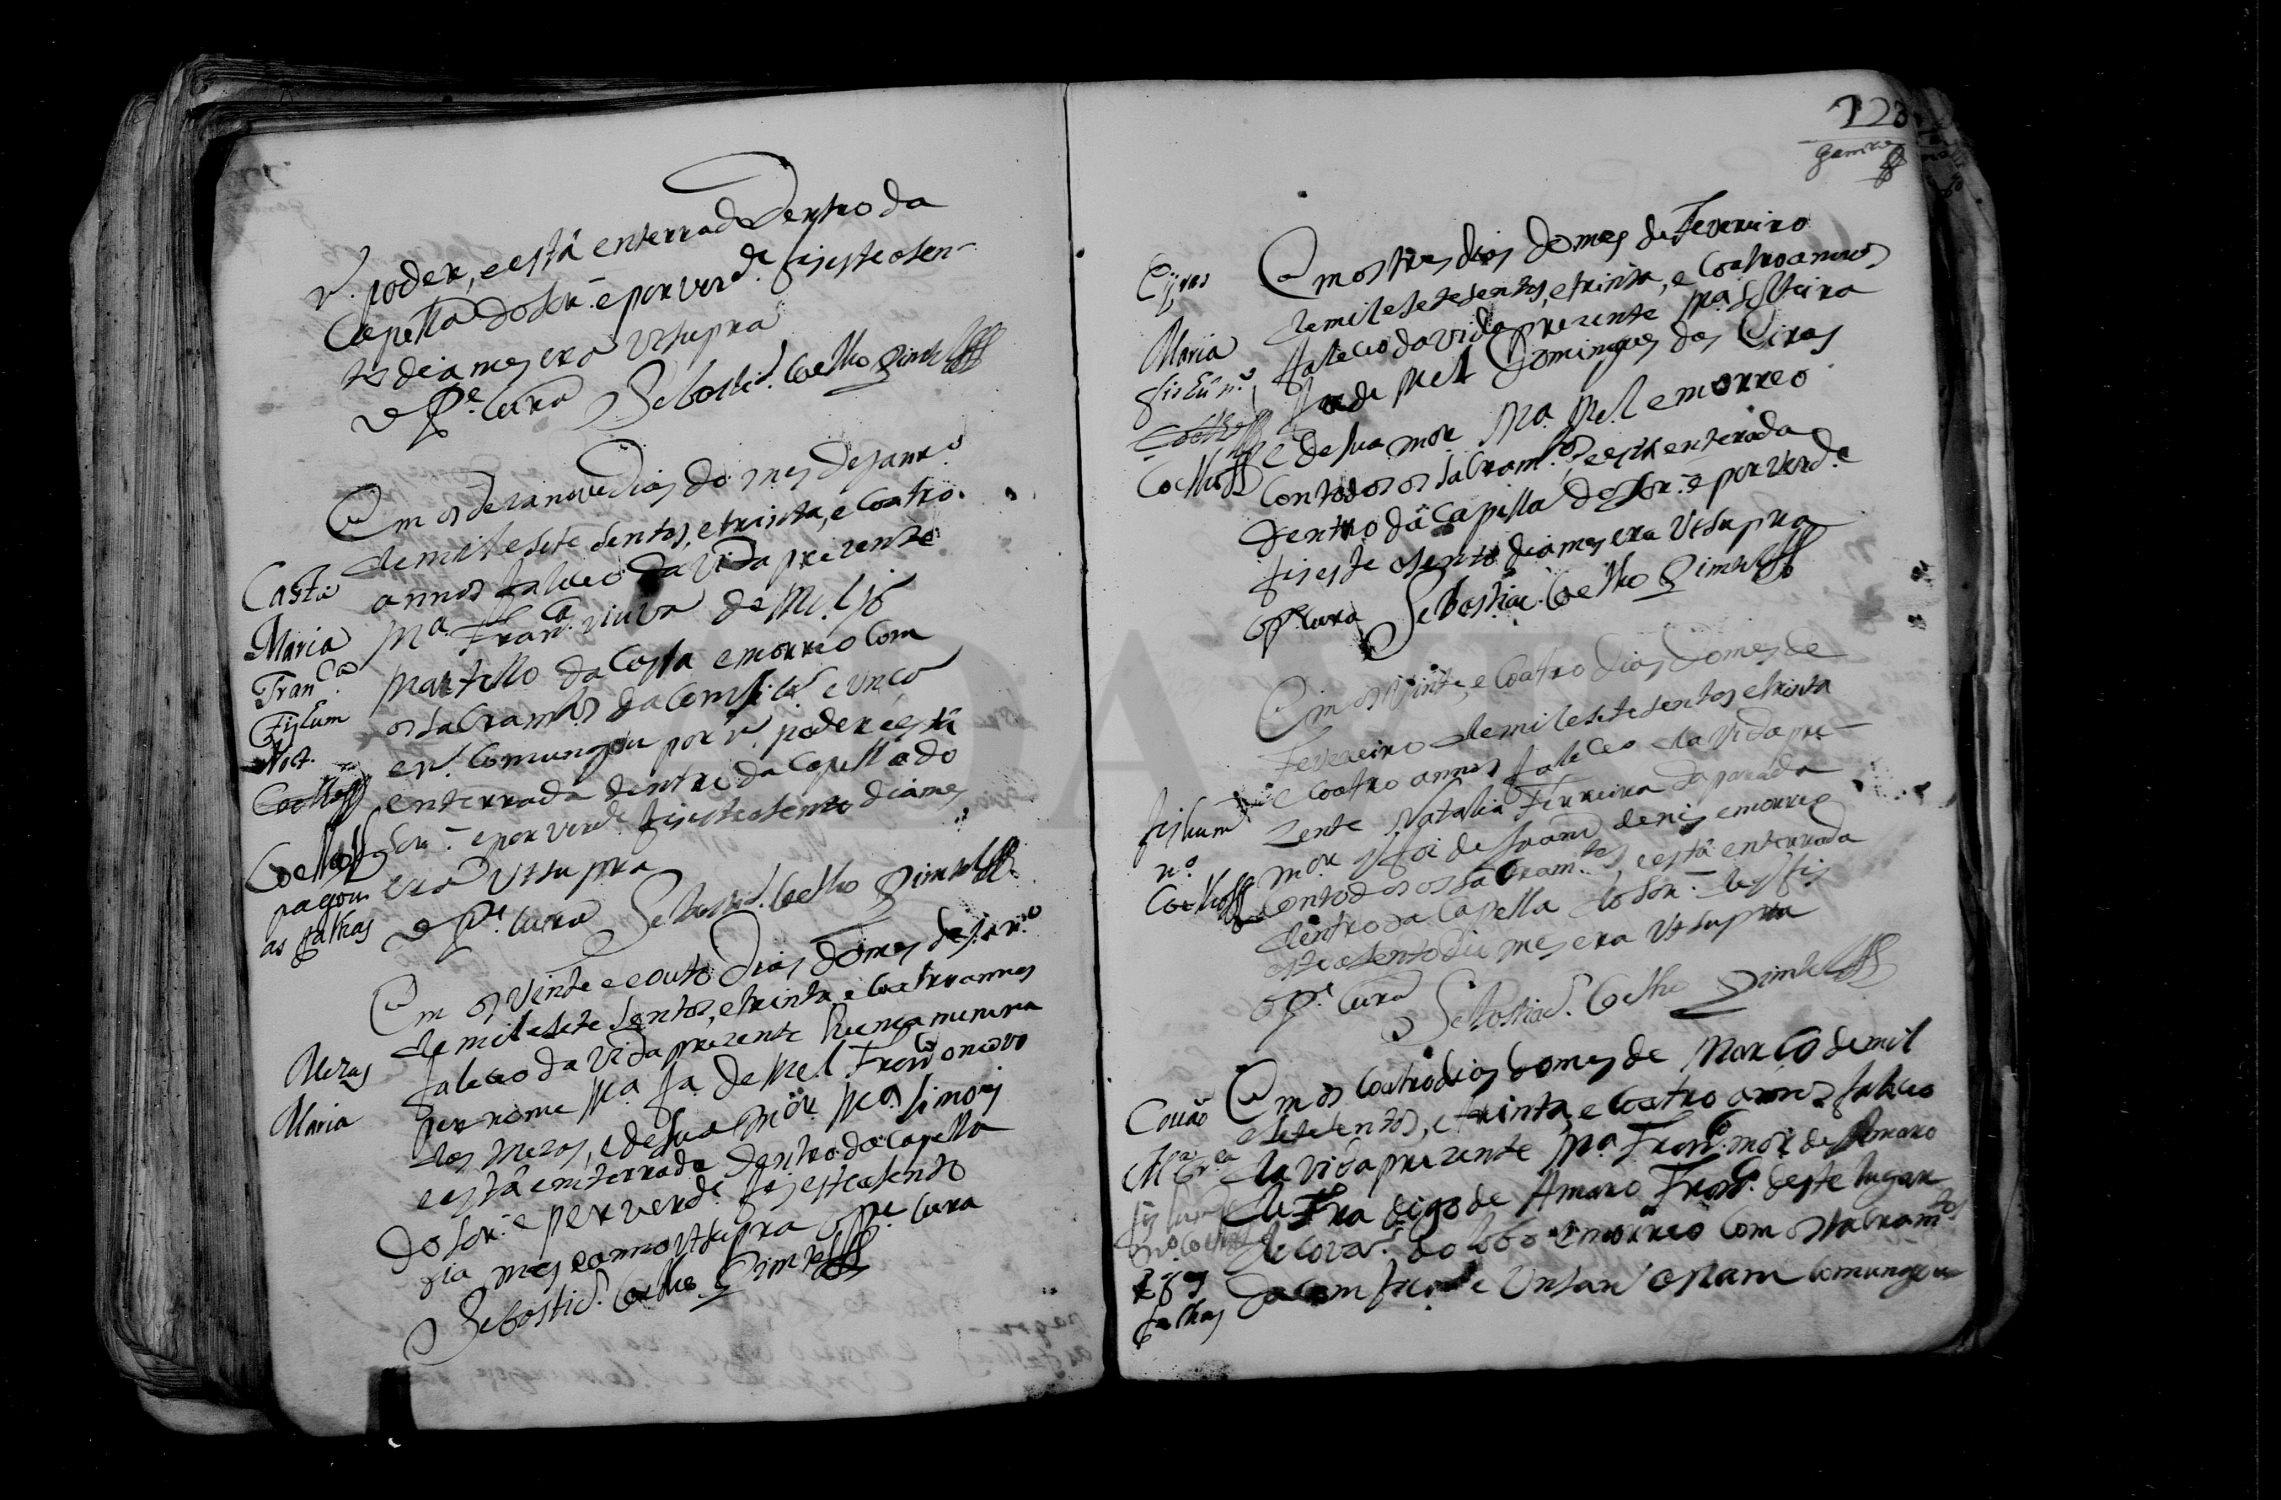 poder, e está enterrado dentro da
Capella do Sor. e por verd.e fis este asen-
to dia mes era Vtsupra
O P.e Cura Sebastiã. Coelho Pimtel
Em os dezanove dias do mes de janr.o
de mil e sete sentos, e trinta, e coatro
annos faleceo da vida prezente
M.a Fran.ca viuva de M.el
Martello da Costa e morreo com
os sacram.tos da comfição e unção
e comungou por poder e está
enterrada dentro da Capella do
Sor. e por verd.e fis este asento dia mes
era Vtsupra
O P.e Cura Sebastiã. Coelho Pimtel
Costa
Maria
Fran.ca
Fis hum
Noct.
Coelho
Coelho
pagou
as falhas
Em os vinte e outo dias do mes de jan.ro
de mil e sete sentos, e trinta, e coatro annos
faleceo da vida prezente hu͂ma menina
per nome M.a f.a de M.el Fran.co o novo
das Mezas, e de sua mor. M.a Simois
e está enterrada dentro da capella
do Sor. e per verd.e fis este asento
dia mes e anno Vtsupra o P.e Cura
Sebastiã. Coelho Pimtel
Mezas
Maria
128
Em os tres dias do mes de Fevereiro
de mil e sete sentos, e trinta, e coatro annos
faleceo da vida prezente M.a solteira
f.a de M.el Domingues das Eiras
e de sua mor. M.a M.el e morreo
con todos os sacram.tos, e está enterada
dentro da capella do Sor. e por verd.e
fis este asento dia mes era Vtsupra
o P.e Cura Sebastiã. Coelho Pimtel
Eijras
Maria
fis hu͂ n.o
Coelho
Coelho
Em os vinte, e coatro dias do mes de
Fevereiro de mil e sete sentos e trinta
e coatro annos faleceo da vida pre-
zente Natalia Ferreira da parada
mor. q foi de Joam denis e morreo
con todos os sacram.tos, e está enterrada
dentro da Capella do Sor. fis
este asento dia mes era Vtsupra
o P.e Cura Sebastiã. Coelho Pimtel
fis hum
n.o
Coelho
Em os coatro dias do mes de Março de mil
e sete sentos, e trinta, e coatro annos faleceo
da vida prezente M.a Fran.ca mor. de Amaro
de Fra digo de Amaro Fran.co deste lugar
de Covã. do lobo e morreo com os sacram.tos
da comfição e Unsam e nam comungou
Couão
M.a
fis hum
n.o Coelho
falhas